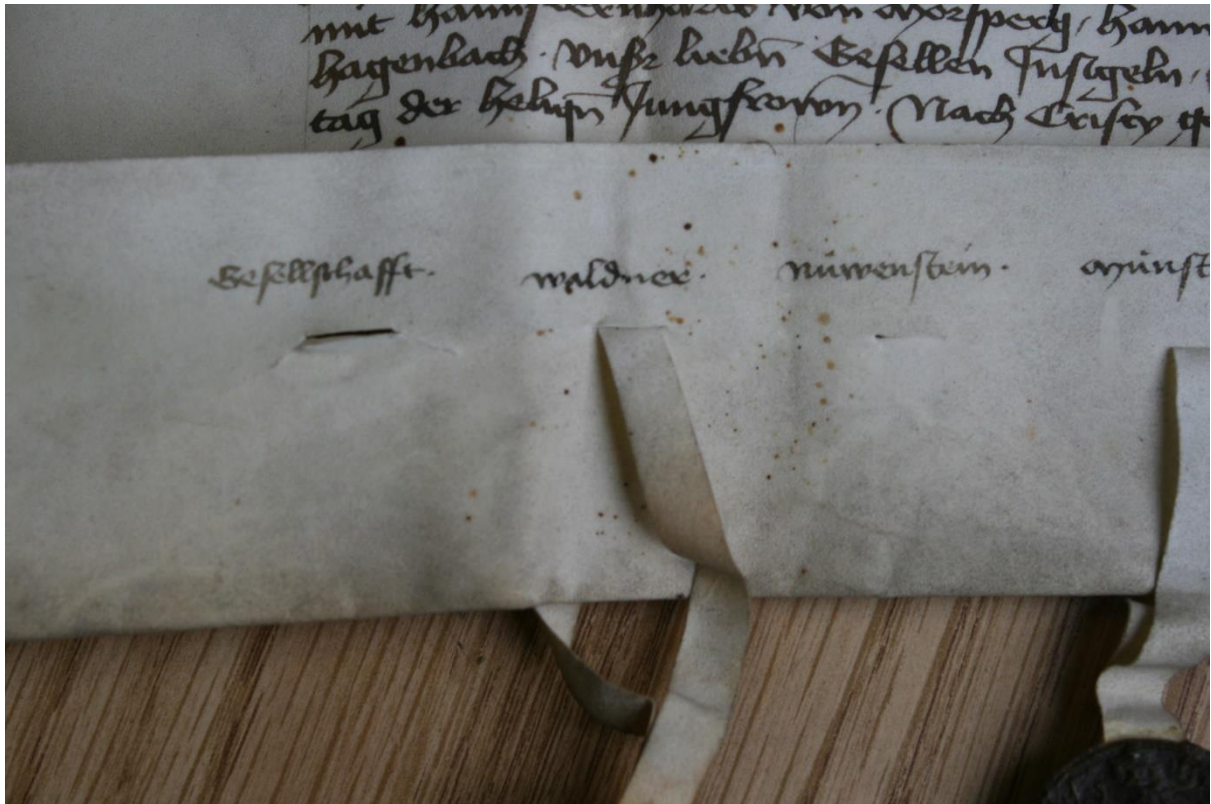 mit hanns Bernhartt von Mörsperg, hann
hagenbach. vnßr liebn̄ Gesellen Jnsigeln,
tag der helign̄ Jungfrown̄. Nach Cristy ge
Gesellschafft. waldner. nüwenstein. Münst